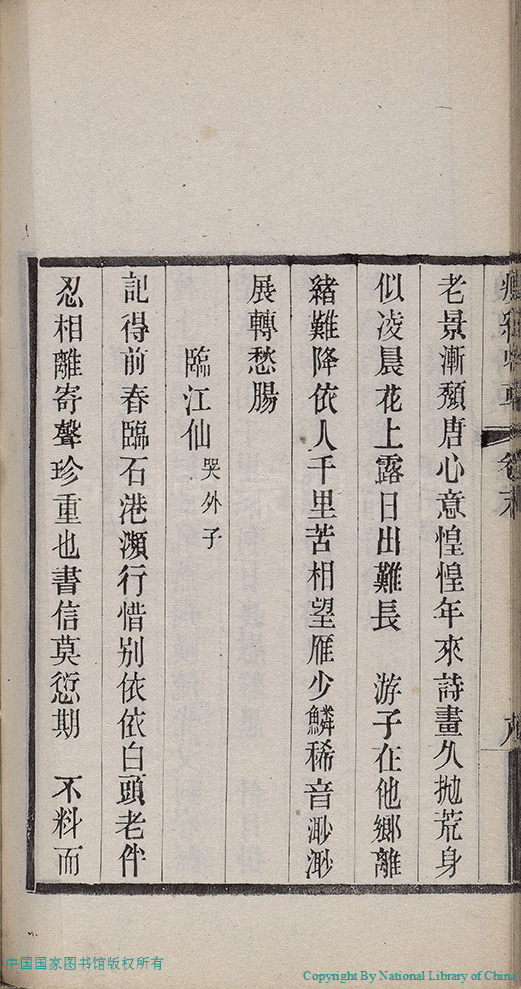 老景漸頽唐心意惶惶年來詩畫久抛荒身
似凌晨花上露日出難長　游子在他鄉離
緒難降依人千里苦相望雁少鱗稀音渺渺
展轉愁腸
臨江仙 哭外子
記得前春臨石港瀕行惜别依依白頭老伴
忍相離寄聲珍重也書信莫愆期　不料而
中国国家图书馆版权所有
Copyright By National Library of China